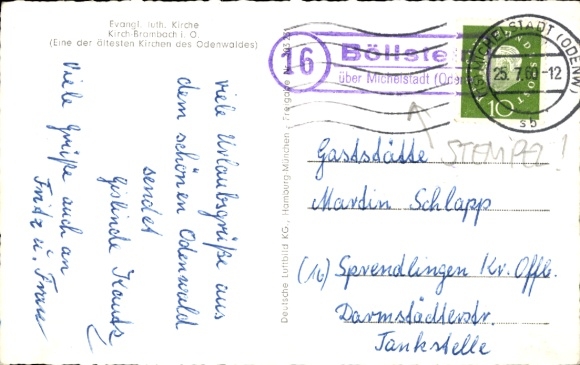 Evangl. luth. Kirche
Kirch-Brombach i. O.
(Eine der ältesten Kirchen des Odenwaldes)
viele Urlaubsgrüße aus
dem schönen Odenwald
sendet
Gislinde Kautz
Viele Grüße auch an
Fritz u. Frau
Deutsche Luftbild KG., Hamburg/München - Freigabe Nr.
16
Böllste
über Michelstadt (Odenw
MICHELSTADT (ODENW)
25.7.60-12
sb
10
STEMPEL!
Gaststätte
Martin Schlapp
(16) Sprendlingen Kr. Offb.
Darmstädterstr.
Tankstelle